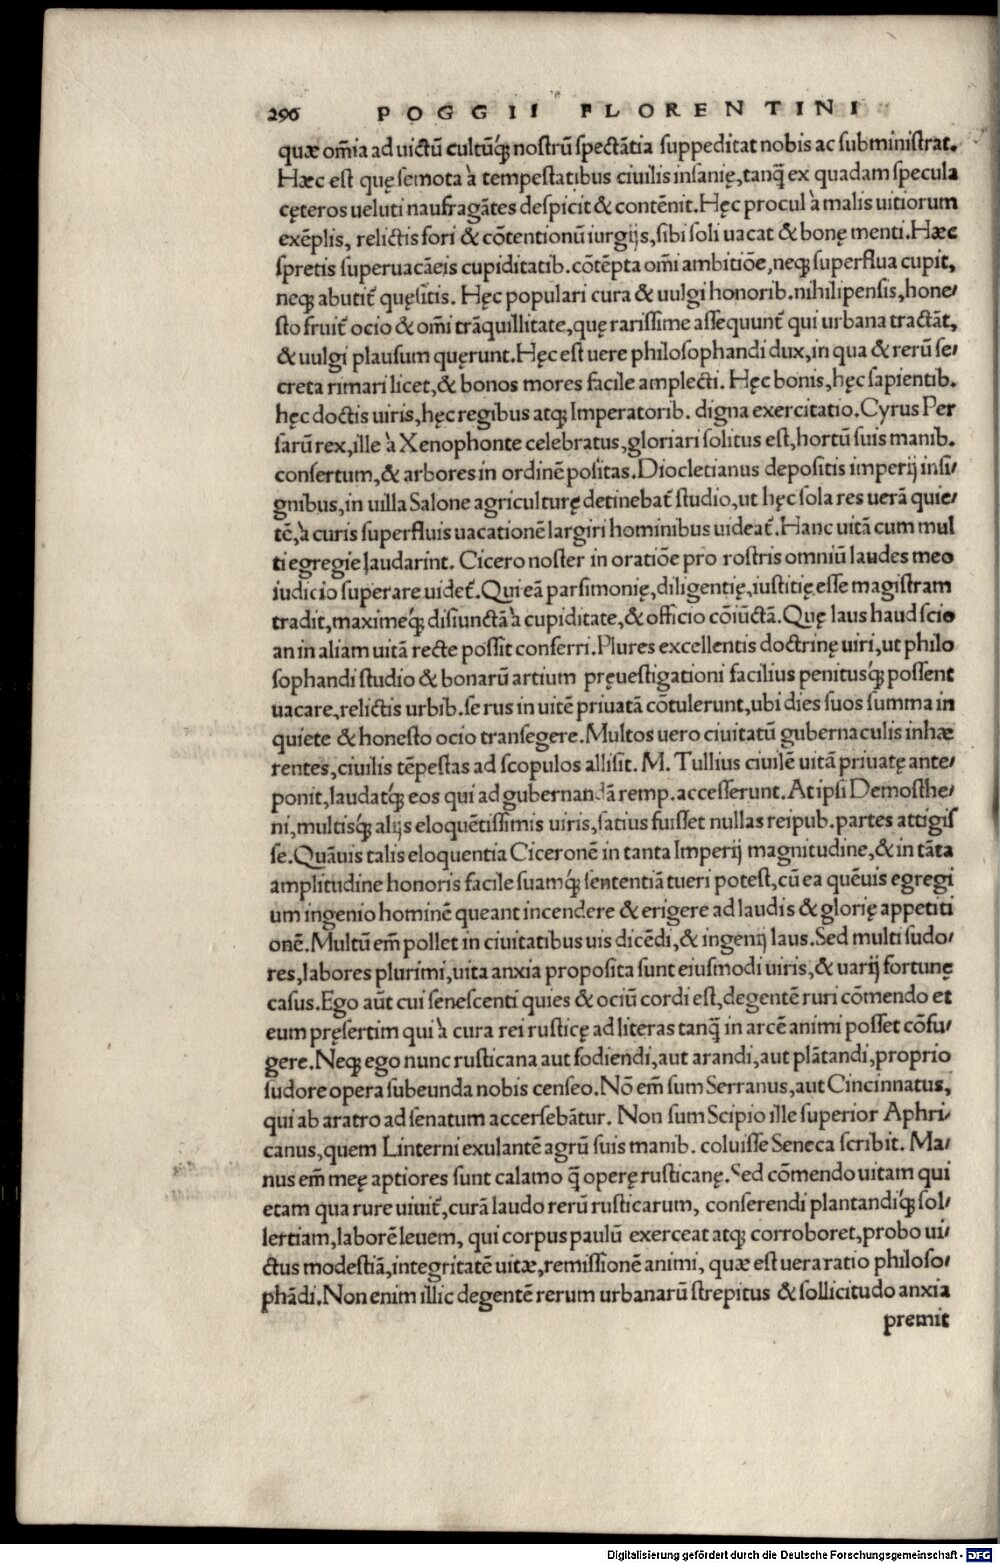 296 POGGII FLORENTINI
quæ om̃ia ad uictũ cultũq́ꝫ nostrũ spectãtia suppeditat nobis ac subministrat.
Hæc est quę semota à tempestatibus ciuilis insanię, tanq̃ ex quadam specula
cęteros ueluti naufragãtes despicit & contẽnit. Hęc procul à malis uitiorum
exẽplis, relictis fori & cõtentionũ iurgijs, sibi soli uacat & bonę menti. Hæc
spretis superuacãeis cupiditatib. cõtẽpta om̃i ambitiõe, neqꝫ superflua cupit,
neqꝫ abutit̃ quęsitis. Hęc populari cura & uulgi honorib. nihilipensis, hone/
sto fruit̃ ocio & om̃i trãquillitate, quę rarissime assequunt̃ qui urbana tractãt,
& uulgi plausum quęrunt. Hęc est uere philosophandi dux, in qua & rerũ se/
creta rimari licet, & bonos mores facile amplecti. Hęc bonis, hęc sapientib.
hęc doctis uiris, hęc regibus atqꝫ Imperatorib. digna exercitatio. Cyrus Per
sarũ rex, ille à Xenophonte celebratus, gloriari solitus est, hortũ suis manib.
consertum, & arbores in ordinẽ positas. Diocletianus depositis imperij insi/
gnibus, in uilla Salone agriculturę detinebat̃ studio, ut hęc sola res uerã quie/
tẽ, à curis superfluis uacationẽ largiri hominibus uideat̃. Hanc uitã cum mul
ti egregie laudarint. Cicero noster in oratiõe pro rostris omniũ laudes meo
iudicio superare uidet̃. Qui eã parsimonię, diligentię, iustitię esse magistram
tradit, maximeq́ꝫ disiunctã à cupiditate, & officio cõiũctã. Quę laus haud scio
an in aliam uitã recte possit conferri. Plures excellentis doctrinę uiri, ut philo
sophandi studio & bonarũ artium pręuestigationi facilius penitusq́ꝫ possent
uacare, relictis urbib. se rus in uitẽ priuatã cõtulerunt, ubi dies suos summa in
quiete & honesto ocio transegere. Multos uero ciuitatũ gubernaculis inhæ
rentes, ciuilis tẽpestas ad scopulos allisit. M. Tullius ciuilẽ uitã priuatę ante/
ponit, laudatq́ꝫ eos qui ad gubernandã remp. accesserunt. At ipsi Demosthe/
ni, multisq́ꝫ alijs eloquẽtissimis uiris, satius fuisset nullas reipub. partes attigis
se. Quãuis talis eloquentia Ciceronẽ in tanta Imperij magnitudine, & in tãta
amplitudine honoris facile suamq́ꝫ sententiã tueri potest, cũ ea quẽuis egregi
um ingenio hominẽ queant incendere & erigere ad laudis & glorię appetiti
onẽ. Multũ em̃ pollet in ciuitatibus uis dicẽdi, & ingenij laus. Sed multi sudo/
res, labores plurimi, uita anxia proposita sunt eiusmodi uiris, & uarij fortunę
casus. Ego aũt cui senescenti quies & ociũ cordi est, degentẽ ruri cõmendo et
eum pręsertim qui à cura rei rusticę ad literas tanq̃ in arcẽ animi posset cõfu/
gere. Neqꝫ ego nunc rusticana aut fodiendi, aut arandi, aut plãtandi, proprio
sudore opera subeunda nobis censeo. Nõ em̃ sum Serranus, aut Cincinnatus,
qui ab aratro ad senatum accersebãtur. Non sum Scipio ille superior Aphri/
canus, quem Linterni exulantẽ agrũ suis manib. coluisse Seneca scribit. Ma/
nus em̃ meę aptiores sunt calamo q̃ operę rusticanę. Sed cõmendo uitam qui
etam qua rure uiuit̃, curã laudo rerũ rusticarum, conserendi plantandiq́ꝫ sol/
lertiam, laborẽ leuem, qui corpus paulũ exerceat atqꝫ corroboret, probo ui/
ctus modestiã, integritatẽ uitæ, remissionẽ animi, quæ est uera ratio philoso/
phãdi. Non enim illic degentẽ rerum urbanarũ strepitus & sollicitudo anxia
premit
Digitalisierung gefördert durch die Deutsche Forschungsgemeinschaft - DFG